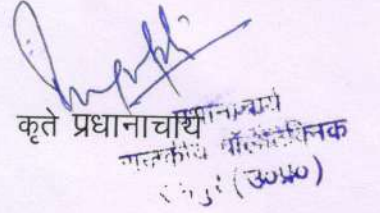 कृते प्रधानाचार्य
प्रधानाचार्य
राजकीय पॉलीटेक्निक
(उ०प्र०)